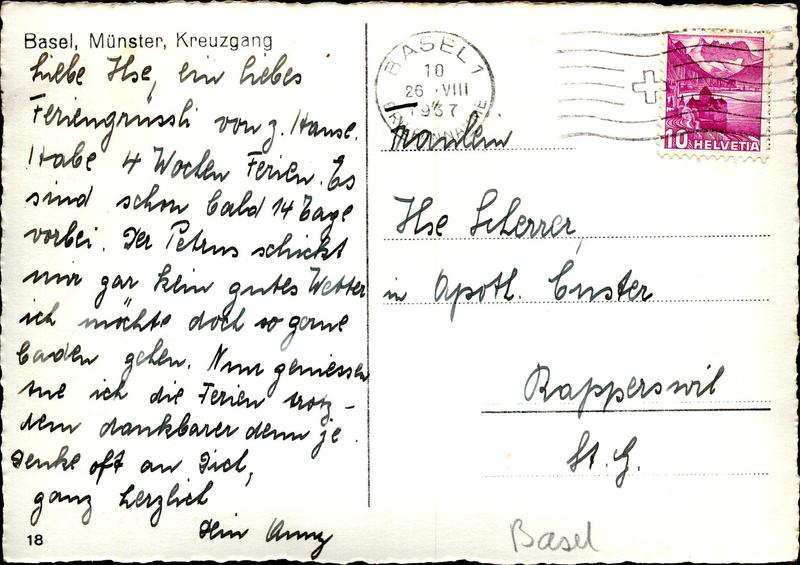 Basel, Münster, Kreuzgang
Liebe Ilse, ein liebes
Feriengrüssli von z. Hause.
Habe 4 Wochen Ferien. Es
sind schon bald 14 Tage
vorbei. Der Petrus schickt
mir gar kein gutes Wetter
ich möchte doch so gerne
baden gehen. Nun geniessen
tue ich die Ferien trotz-
dem dankbarer denn je.
Denke oft an Dich,
ganz herzlich
Dein Anny
18
BASEL 1
10
26.VIII
1937
10 HELVETIA
Fräulein
Ilse Scherrer,
in Apoth. Custer
Rapperswil
St. G.
Basel